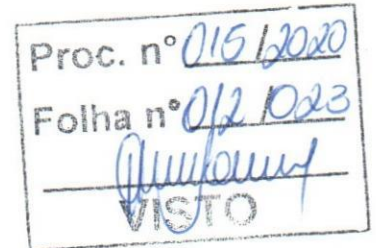 Proc. nº 015/2020
Folha nº 012/023
VISTO